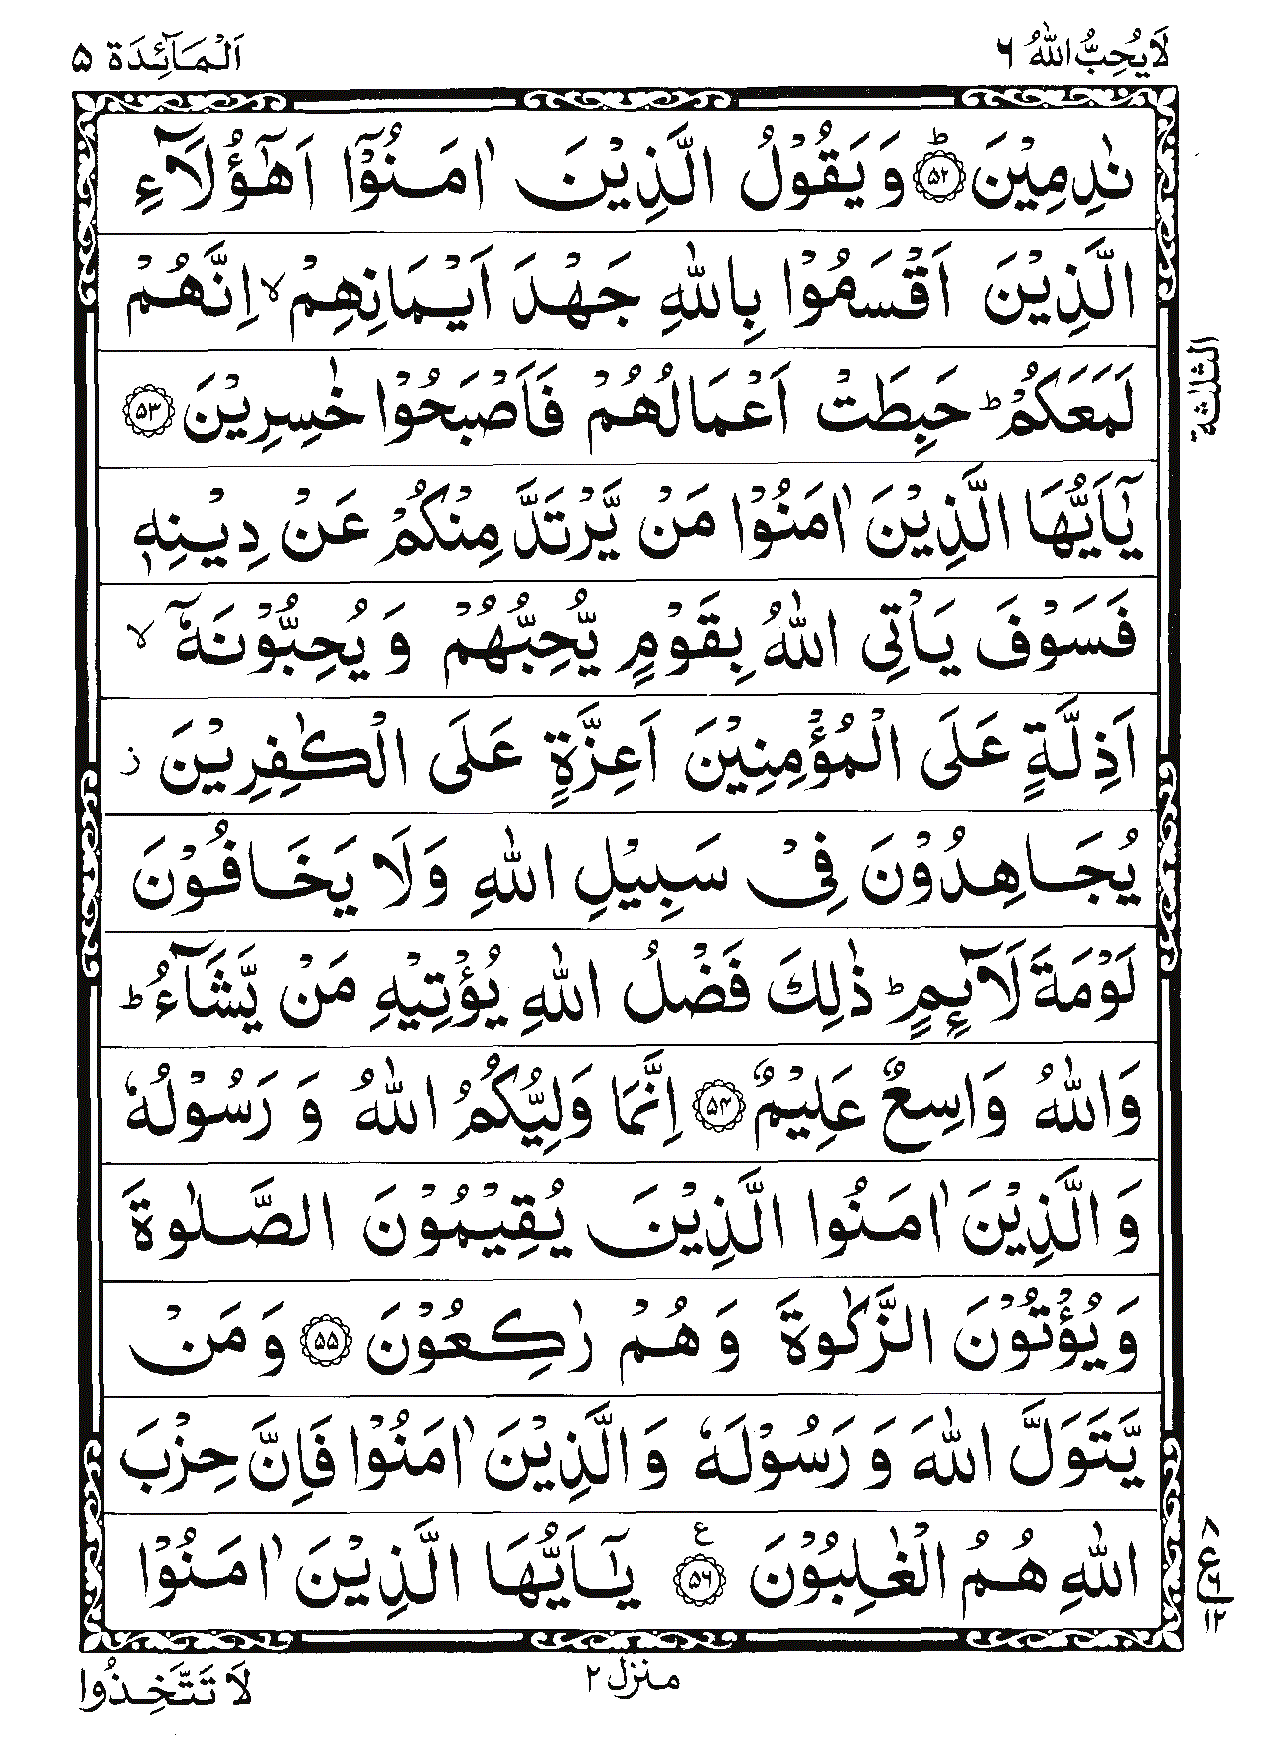 لَايُحِبُّ اللّٰهُ ٦
اَلْمَآئِدَة ۵
نٰدِمِيْنَ ؕ‏﴿۵۲﴾ وَ يَقُوْلُ الَّذِيْنَ اٰمَنُوْۤا اَهٰٓؤُلَآءِ
الَّذِيْنَ اَقْسَمُوْا بِاللّٰهِ جَهْدَ اَيْمَانِهِمْ ۙ اِنَّهُمْ
لَمَعَكُمْ ؕ حَبِطَتْ اَعْمَالُهُمْ فَاَصْبَحُوْا خٰسِرِيْنَ ﴿۵۳﴾
الثلثة
يٰۤاَيُّهَا الَّذِيْنَ اٰمَنُوْا مَنْ يَّرْتَدَّ مِنْكُمْ عَنْ دِيْنِهٖ
فَسَوْفَ يَاْتِى اللّٰهُ بِقَوْمٍ يُّحِبُّهُمْ وَ يُحِبُّوْنَهٗۤ ۙ
اَذِلَّةٍ عَلَى الْمُؤْمِنِيْنَ اَعِزَّةٍ عَلَى الْكٰفِرِيْنَ ز
يُجَاهِدُوْنَ فِىْ سَبِيْلِ اللّٰهِ وَلَا يَخَافُوْنَ
لَوْمَةَ لَآئِمٍ ؕ ذٰلِكَ فَضْلُ اللّٰهِ يُؤْتِيْهِ مَنْ يَّشَآءُ ؕ
وَاللّٰهُ وَاسِعٌ عَلِيْمٌ ﴿۵۴﴾ اِنَّمَا وَلِيُّكُمُ اللّٰهُ وَ رَسُوْلُهٗ
وَ الَّذِيْنَ اٰمَنُوا الَّذِيْنَ يُقِيْمُوْنَ الصَّلٰوةَ
وَ يُؤْتُوْنَ الزَّكٰوةَ وَ هُمْ رٰكِعُوْنَ ﴿۵۵﴾ وَ مَنْ
يَّتَوَلَّ اللّٰهَ وَ رَسُوْلَهٗ وَ الَّذِيْنَ اٰمَنُوْا فَاِنَّ حِزْبَ
اللّٰهِ هُمُ الْغٰلِبُوْنَ ﴿۵۶﴾ ع يٰۤاَيُّهَا الَّذِيْنَ اٰمَنُوْا
۸
ع
٦
۱۲
منزل ۲
لَا تَتَّخِذُوا